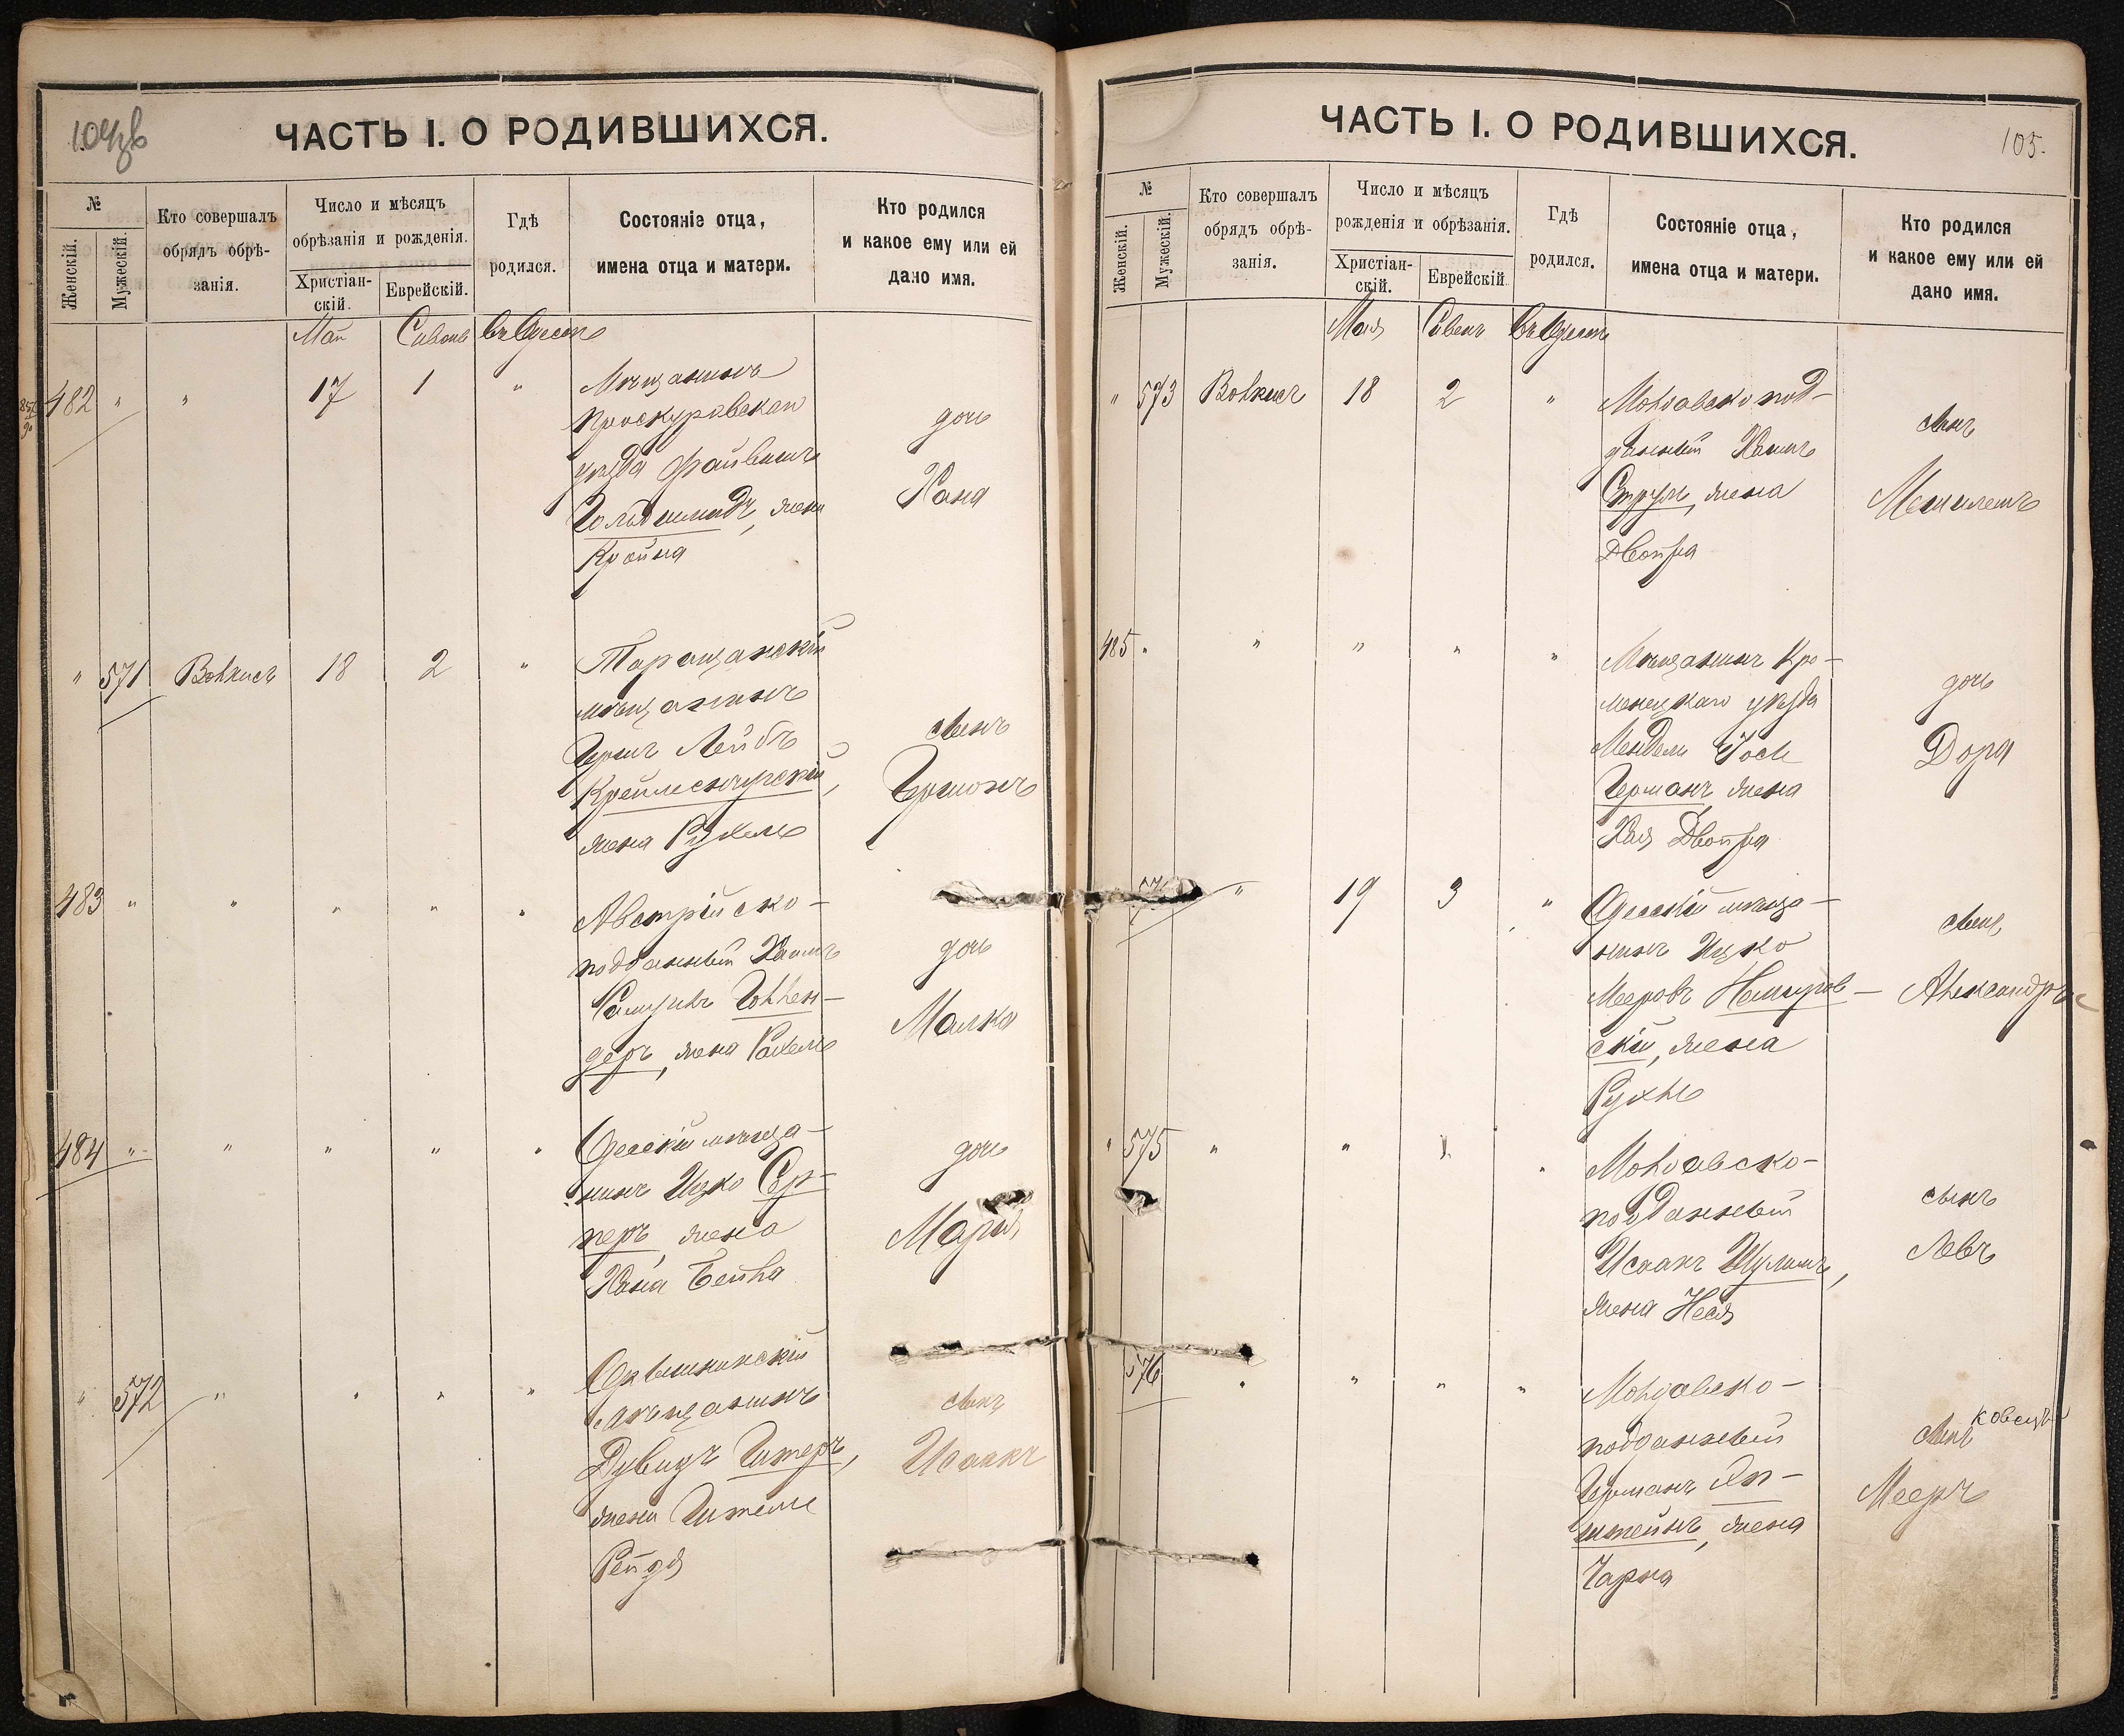 ЧАСТЬ I. О РОДИВШИХСЯ.
№
Женскій.
Мужескій.
Кто совершалъ
обрядъ обрѣ-
занія.
Число и мѣсяцъ
обрѣзанія и рожденія.
Христіан-
скій.
Еврейскій.
Гдѣ
родился.
Состояніе отца,
имена отца и матери.
Кто родился
и какое ему или ей
дано имя.
Май Сивонъ въ Одессѣ
482 " " 17 1 " Мѣщанинъ
Проскуровскаго
уѣзда Файвишъ
Гольдшмидъ, жена
Кройна
дочь
Хана
" 571 Волкисъ 18 2 " Таращанскій
мѣщанинъ
Гершъ Лейбъ
жена Рухель
сынъ
483 " " " " " Австрійско-
подданный Хаимъ
Голлен-
деръ, жена Рахель
дочь
Малка
484 " " " " " Одесскій мѣща-
нинъ Ицко Сер-
перъ, жена
Хана Бейла
дочь
Марія
" 572 " " " "
мѣщанинъ
Дувидъ
жена
Рейзя
сынъ
Исаакъ
ЧАСТЬ I. О РОДИВШИХСЯ.
105.
№
Женскій.
Мужескій.
Кто совершалъ
обрядъ обрѣ-
занія.
Число и мѣсяцъ
рожденія и обрѣзанія.
Христіан-
скій.
Еврейскій.
Гдѣ
родился.
Состояніе отца,
имена отца и матери.
Кто родился
и какое ему или ей
дано имя.
Мая Сивенъ въ Одессѣ
" 573 Волкисъ 18 2 " Молдавско под-
данный Хаимъ
Струль, жена
Двойра
сынъ
485 " " " " " Мѣщанинъ Кре-
менецкаго уѣзда
Мендель Іось
Германъ, жена
Хая Двойра
дочь
Дора
" 19 3 " Одесскій мѣща-
нинъ Ицко
Мееровъ Немиров-
скій, жена
Рухль
сынъ
Александръ
" 575 " " " Молдавско-
подданный
Исаакъ Шулимъ,
жена Неся
сынъ
Левъ
576 " " " " Молдавско-
подданный
Германъ Эп-
штейнъ, жена
Чарна
сынъ
Мееръ